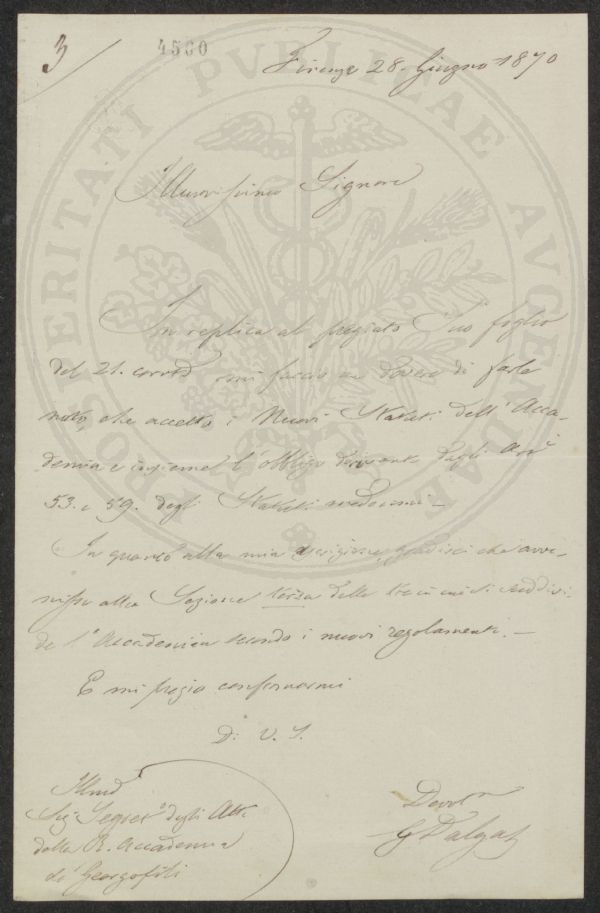 3
4500
Firenze 28. Giugno 1870
Illustrissimo Signore
In replica al pregiato Suo foglio
del 21. corr.e mi faccio un dovere di farle
noto, che accetto i Nuovi Statuti dell'Acca-
demia e insieme l'obbligo derivante dagli Art.i
53. e 59. degli Statuti medesimi –
In quanto alla mia gradirei che avve-
nisse alla Sezione terza delle tre in cui si suddivi-
de l'Accademia secondo i nuovi regolamenti. –
E mi pregio confermarmi
Di V. S.
Illmo
Sig. Segret.o degli Atti
della R. Accademia
de' Georgofili
Devot.
PROSPERITATI PVBLICAE AVGENDAE